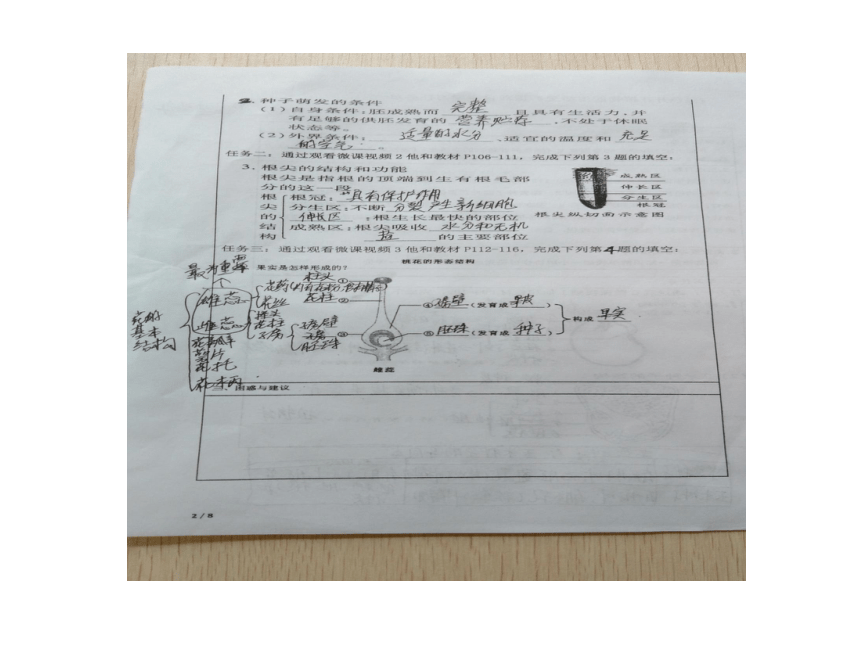 2. 种子萌发的条件
(1)自身条件:胚成熟而 完整 且具有生活力,并
有足够的供胚发育的 营养贮存 ,不处于休眠
状态等。
(2)外界条件: 适量的水分 、适宜的温度和 充足
的空气 。
任务二:通过观看微课视频2他和教材P106-111,完成下列第3题的填空:
3.根尖的结构和功能
根尖是指根的顶端到生有根毛部
分的这一段
根尖的结构
根冠:具有保护作用
分生区:不断 分裂产生新细胞
伸长区 :根生长最快的部位
成熟区:根尖吸收 水分和无机
盐 的主要部位
成熟区
伸长区
分生区
根冠
根尖纵切面示意图
任务三:通过观看微课视频3他和教材P112-116,完成下列第4题的填空:
桃花的形态结构
最为重要
果实是怎样形成的?
花的基本结构
雄蕊
花药
花丝
雌蕊
柱头
花柱
子房
子房壁
胚珠
花萼
花托
花柄
柱头 ①
花柱 ②
③
④ 子房壁 (发育成 果皮 )
⑤ 胚珠 (发育成 种子 )
构成 果实
雌蕊
困惑与建议
2 / 8